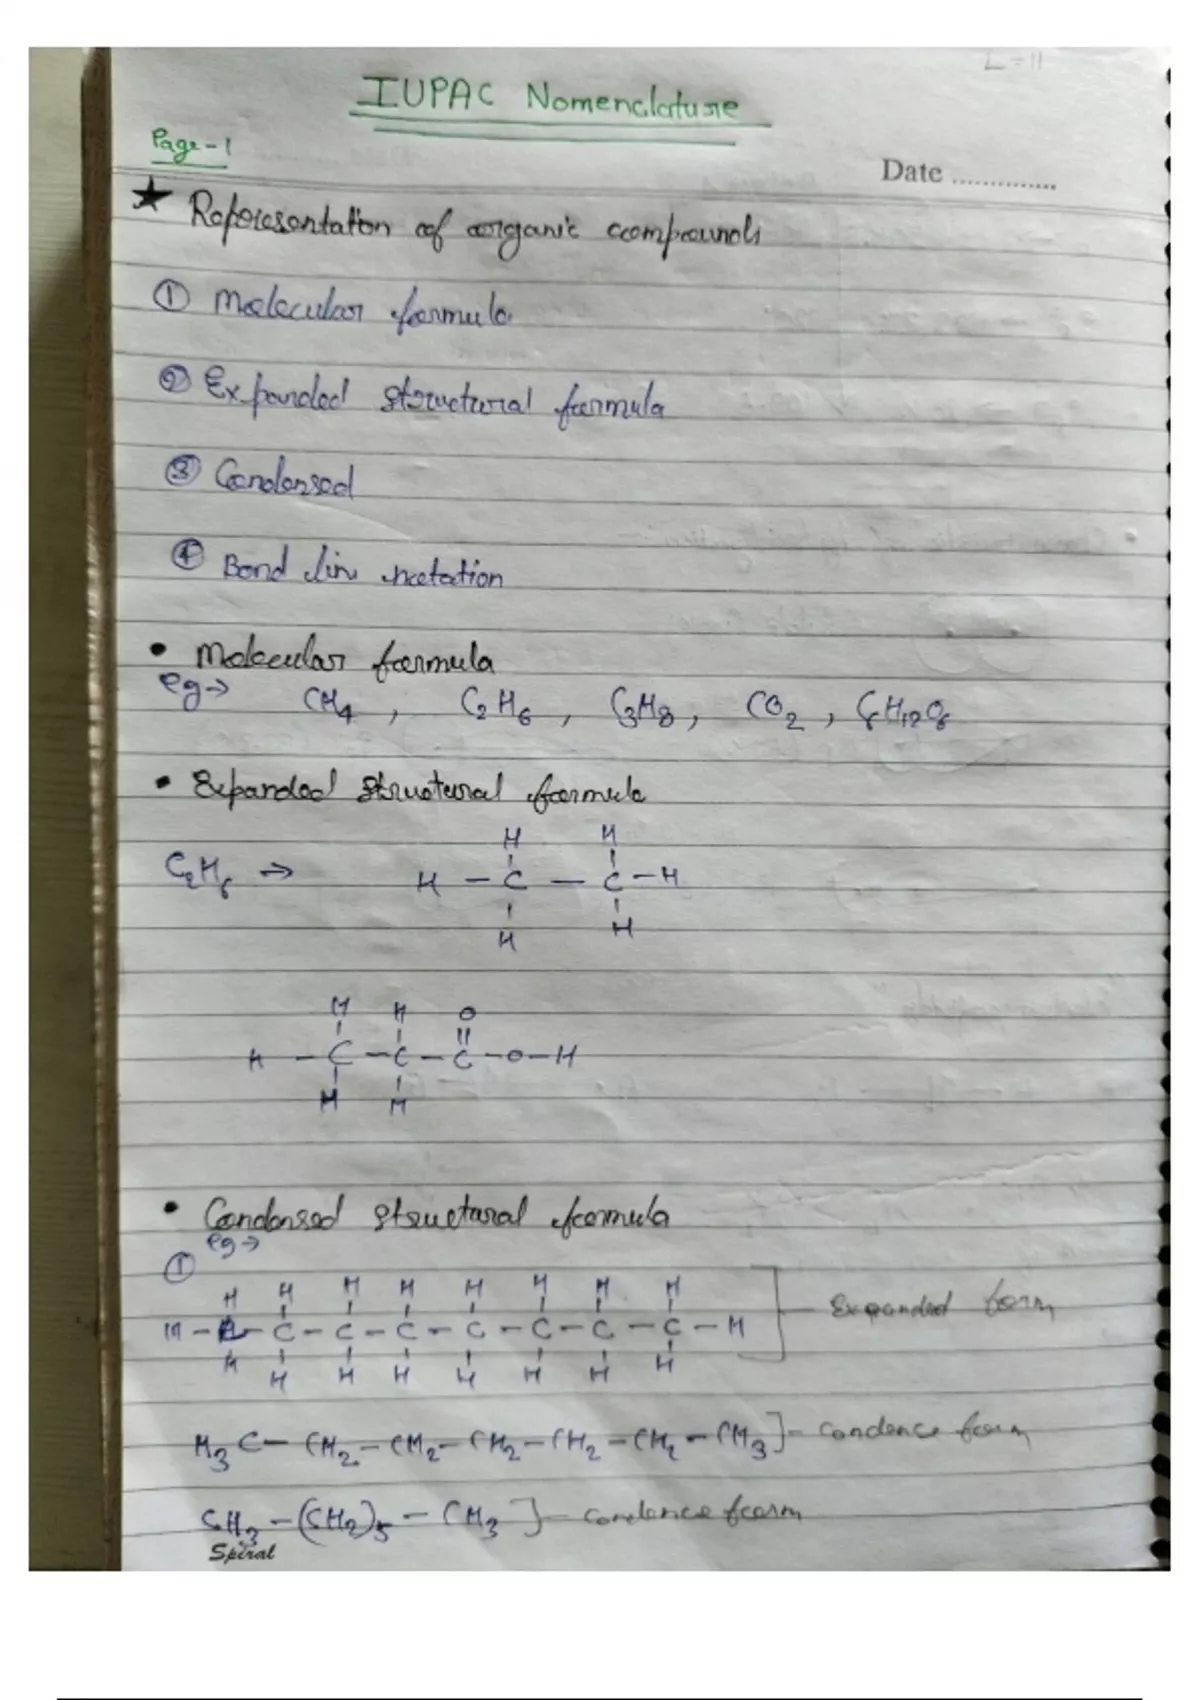 L-11
IUPAC Nomenclature
Page-1
Date ..............
★ Representation of organic compounds
① Molecular formula
② Expanded structural formula
③ Condensed
④ Bond line notation
• Molecular formula
eg→ CH4 , C2H6 , C3H8 , CO2 , C6H12O6
• Expanded structural formula
H H
C2H6 ⇒ H - C - C - H
H H
H H O
H - C - C - C - O - H
H H
• Condensed structural formula
eg→
①
H H H H H H H H
H - C - C - C - C - C - C - C - C - H ] - Expanded form
H H H H H H H H
H3C - CH2 - CH2 - CH2 - CH2 - CH2 - CH3 ] - condence form
CH3 - (CH2)5 - CH3 ] - condence form
Spiral